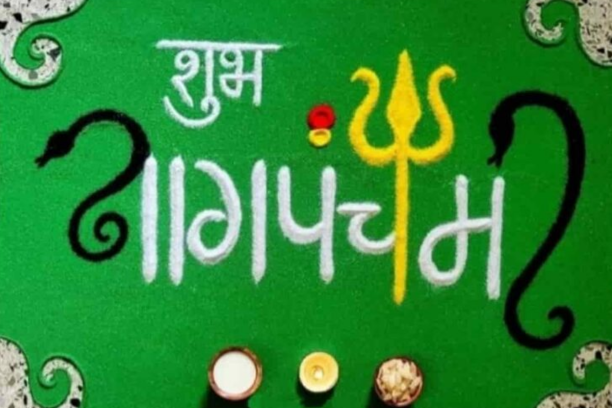 शुभ
नागपंचमी